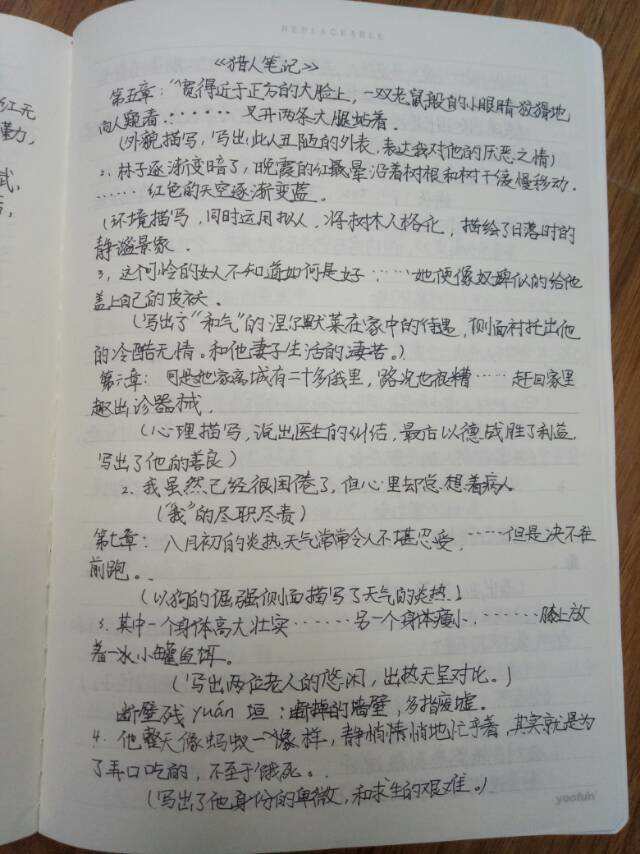 REPLACEABLE
《猎人笔记》
第五章：“宽得近于正方的大脸上，一双老鼠般的小眼睛狡猾地
向人窥着．······ 叉开两条大腿站着．
(外貌描写，写出此人丑陋的外表，表达我对他的厌恶之情)
2，林子逐渐变暗了，晚霞的红晕沿着树根和树干缓慢移动．
······ 红色的天空逐渐变蓝．
(环境描写，同时运用拟人，将树木人格化，描绘了日落时的
静谧景象．
3，这可怜的女人不知道如何是好 ······ 她便像奴婢似的给他
盖上自己的皮袄．
(写出了“和气”的涅尔默莱在家中的待遇，侧面衬托出他
的冷酷无情。和他妻子生活的凄苦。)
第六章： 可是她家离城有二十多俄里，路况也很糟······ 赶回家里
取出诊器械．
(心理描写，说出医生的纠结，最后以德战胜了利益，
写出了他的善良)
2．我虽然已经很困倦了，但心里却总想着病人
(“我”的尽职尽责)
第七章： 八月初的炎热天气常常令人不堪忍受，······但是决不往
前跑。．
(以狗的倔强侧面描写了天气的炎热．)
3．其中一个身体高大壮实 ······· 另一个身体瘦小，······· 膝上放
着一冰小罐鱼饵。
(写出两位老人的悠闲，出热天呈对比。)
断壁残yuán 垣：断掉的墙壁，多指废墟．
4．他整天像蚂蚁一像样，静悄悄悄地忙乎着，其实就是为
了弄口吃的，不至于饿死。．
(写出了他身份的卑微，和求生的艰难。)
yoofun